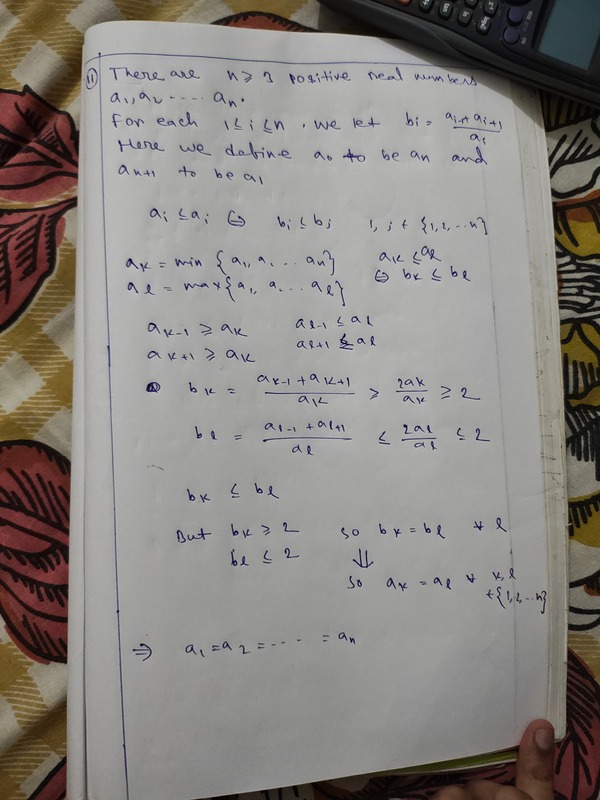 11) There are n ≥ 3 positive real numbers
a₁, a₂ ..... aₙ.
For each 1 ≤ i ≤ n. we let bᵢ = (aᵢ₋₁ + aᵢ₊₁)/aᵢ
Here we define a₀ to be aₙ and
aₙ₊₁ to be a₁
aᵢ ≤ aⱼ ⇔ bᵢ ≤ bⱼ i, j ∈ {1, 2, ... n}
aₖ = min {a₁, a, ... aₙ} aₖ ≤ aₗ
aₗ = max {a₁, a, ... aₗ} ⇔ bₖ ≤ bₗ
aₖ₋₁ ≥ aₖ aₗ₋₁ ≤ aₗ
aₖ₊₁ ≥ aₖ aₗ₊₁ ≤ aₗ
bₖ = (aₖ₋₁ + aₖ₊₁)/aₖ ≥ 2aₖ/aₖ ≥ 2
bₗ = (aₗ₋₁ + aₗ₊₁)/aₗ ≤ 2aₗ/aₗ ≤ 2
bₖ ≤ bₗ
But bₖ ≥ 2 so bₖ = bₗ ∀ l
bₗ ≤ 2 ⇓
so aₖ = aₗ ∀ k, l
∈ {1, 2, ... n}
⇒ a₁ = a₂ = ---- = aₙ